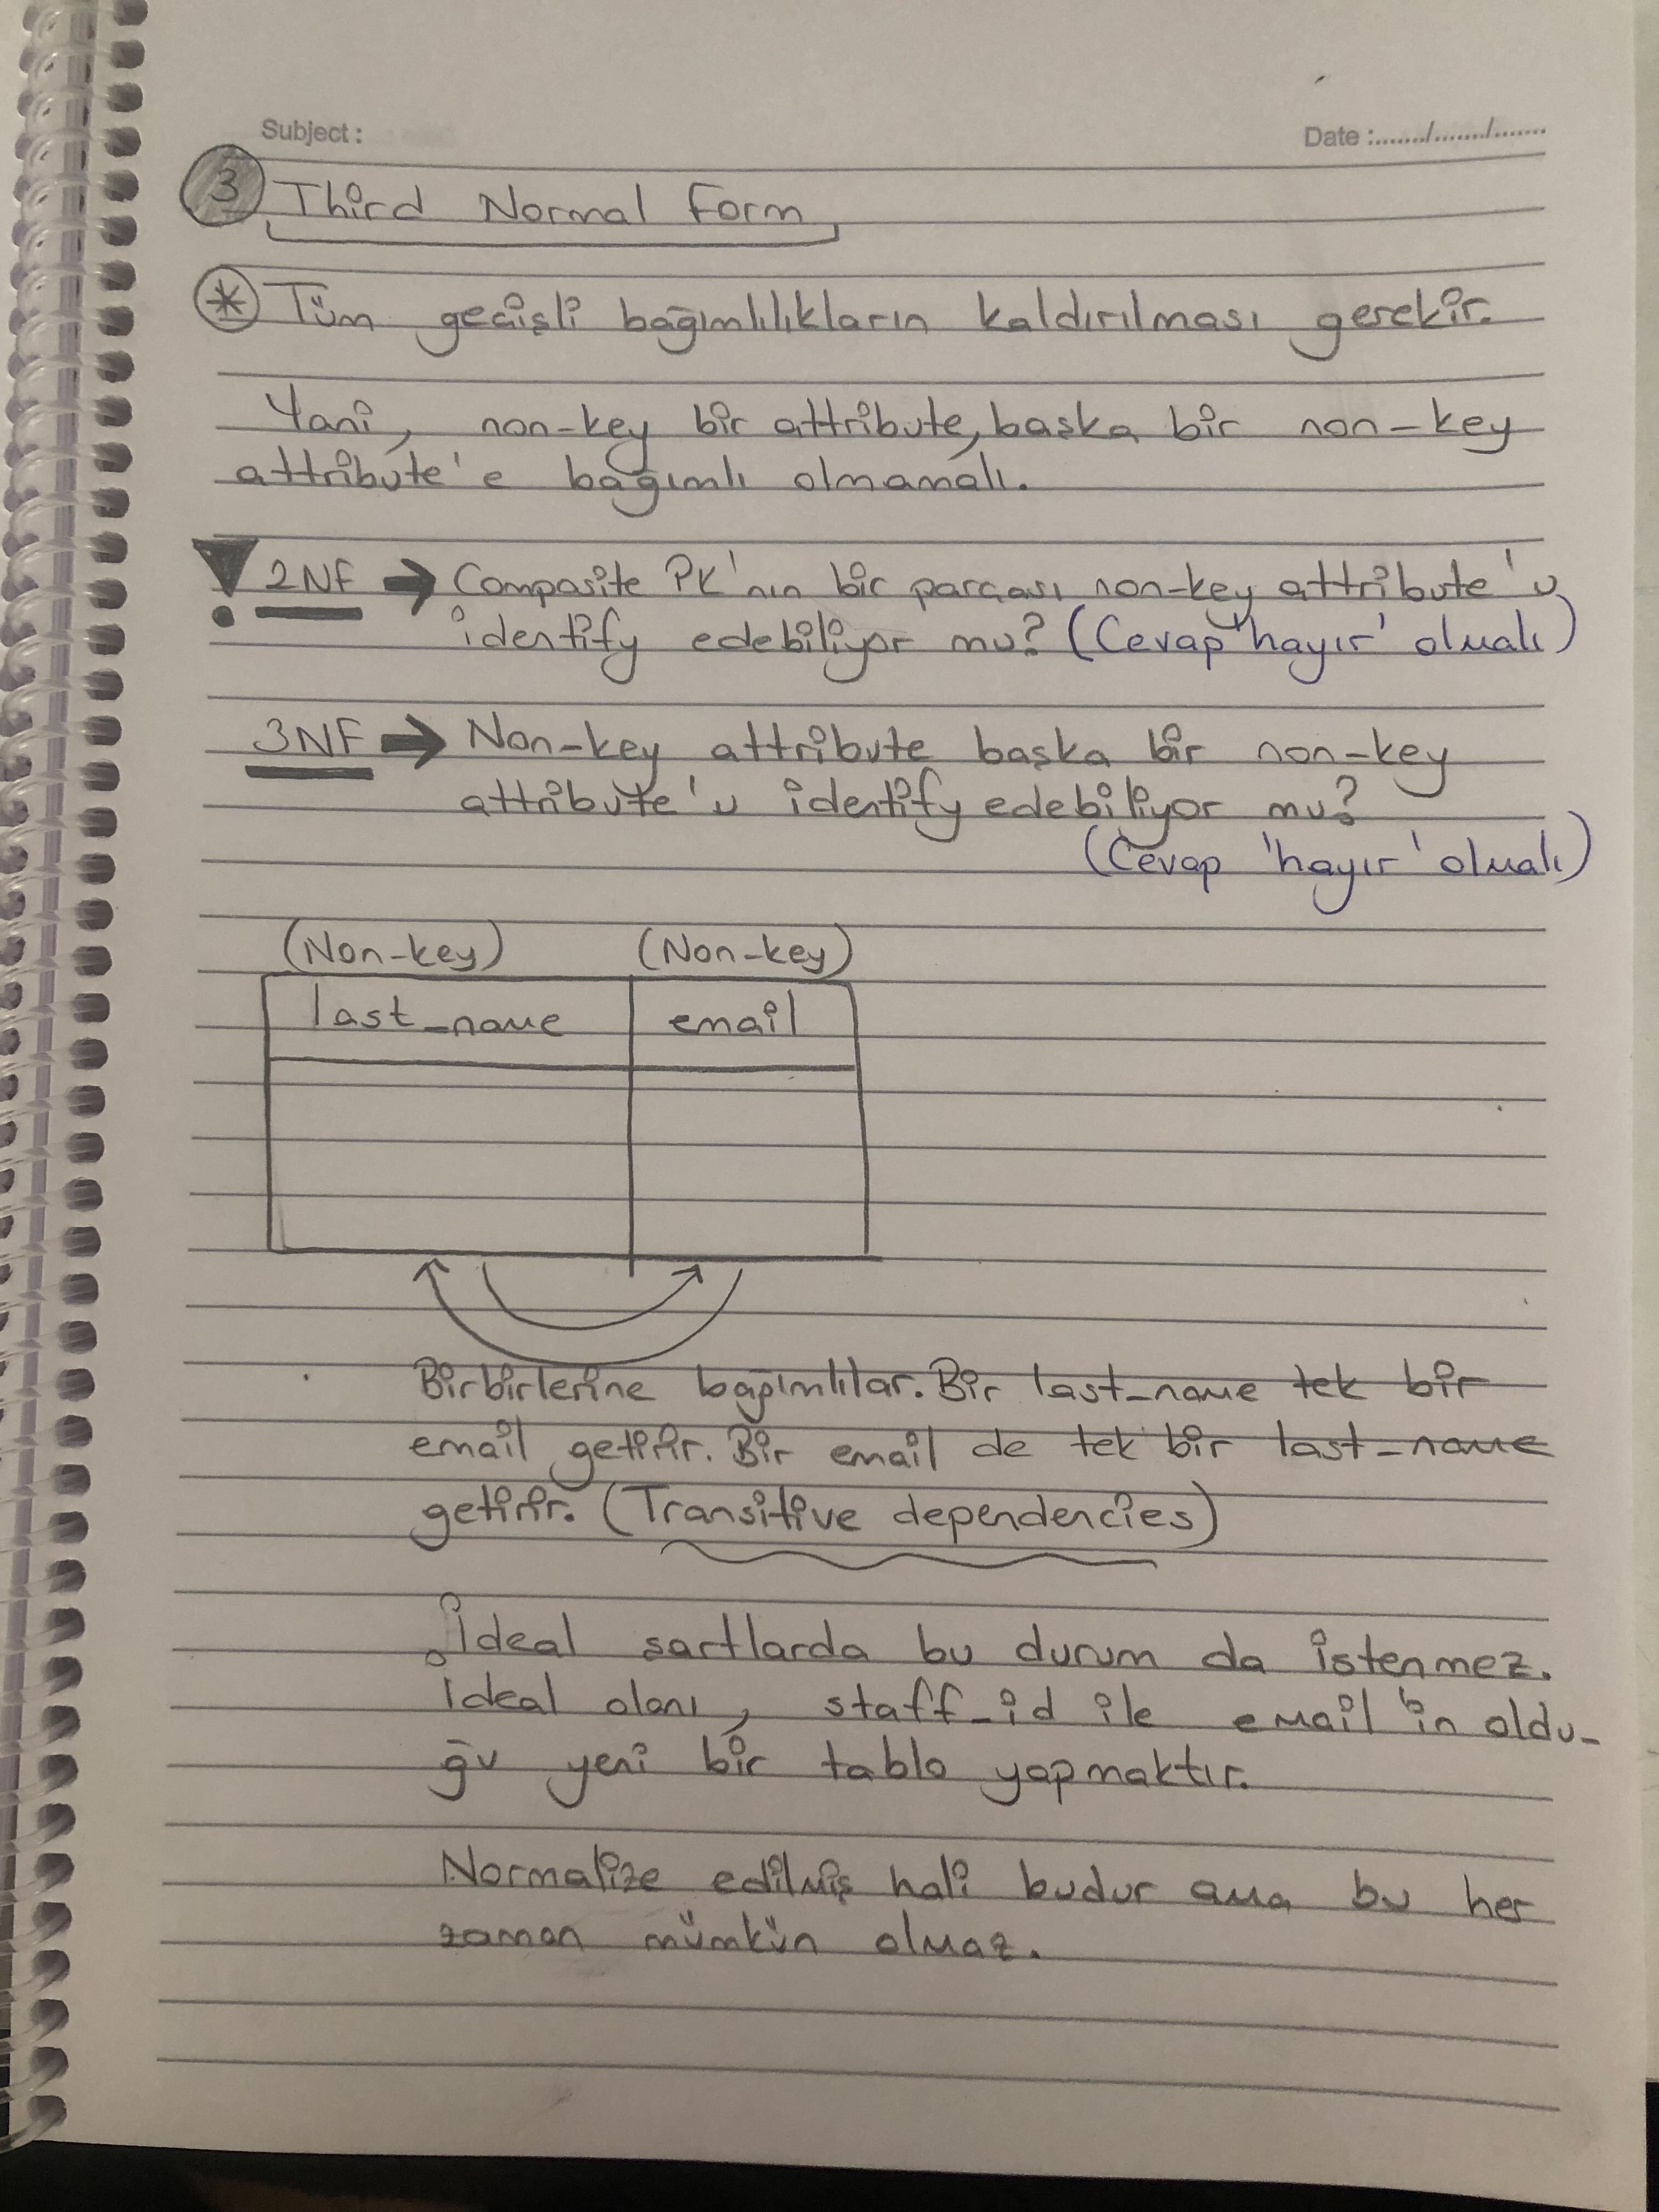 Subject :
Date :......./......./.......
3 Third Normal Form
* Tüm geçişli bağımlılıkların kaldırılması gerekir.
Yani, non-key bir attribute, başka bir non-key
attribute'e bağımlı olmamalı.
2NF → Composite PK'nın bir parçası non-key attribute'u
identify edebiliyor mu? (Cevap 'hayır' olmalı)
3NF → Non-key attribute başka bir non-key
attribute'u identify edebiliyor mu?
(Cevap 'hayır' olmalı)
(Non-key) (Non-key)
last_name email
Birbirlerine bağımlılar. Bir last_name tek bir
email getirir. Bir email de tek bir last_name
getirir. (Transitive dependencies)
İdeal şartlarda bu durum da istenmez.
İdeal olanı, staff_id ile email'in oldu-
ğu yeni bir tablo yapmaktır.
Normalize edilmiş hali budur ama bu her
zaman mümkün olmaz.